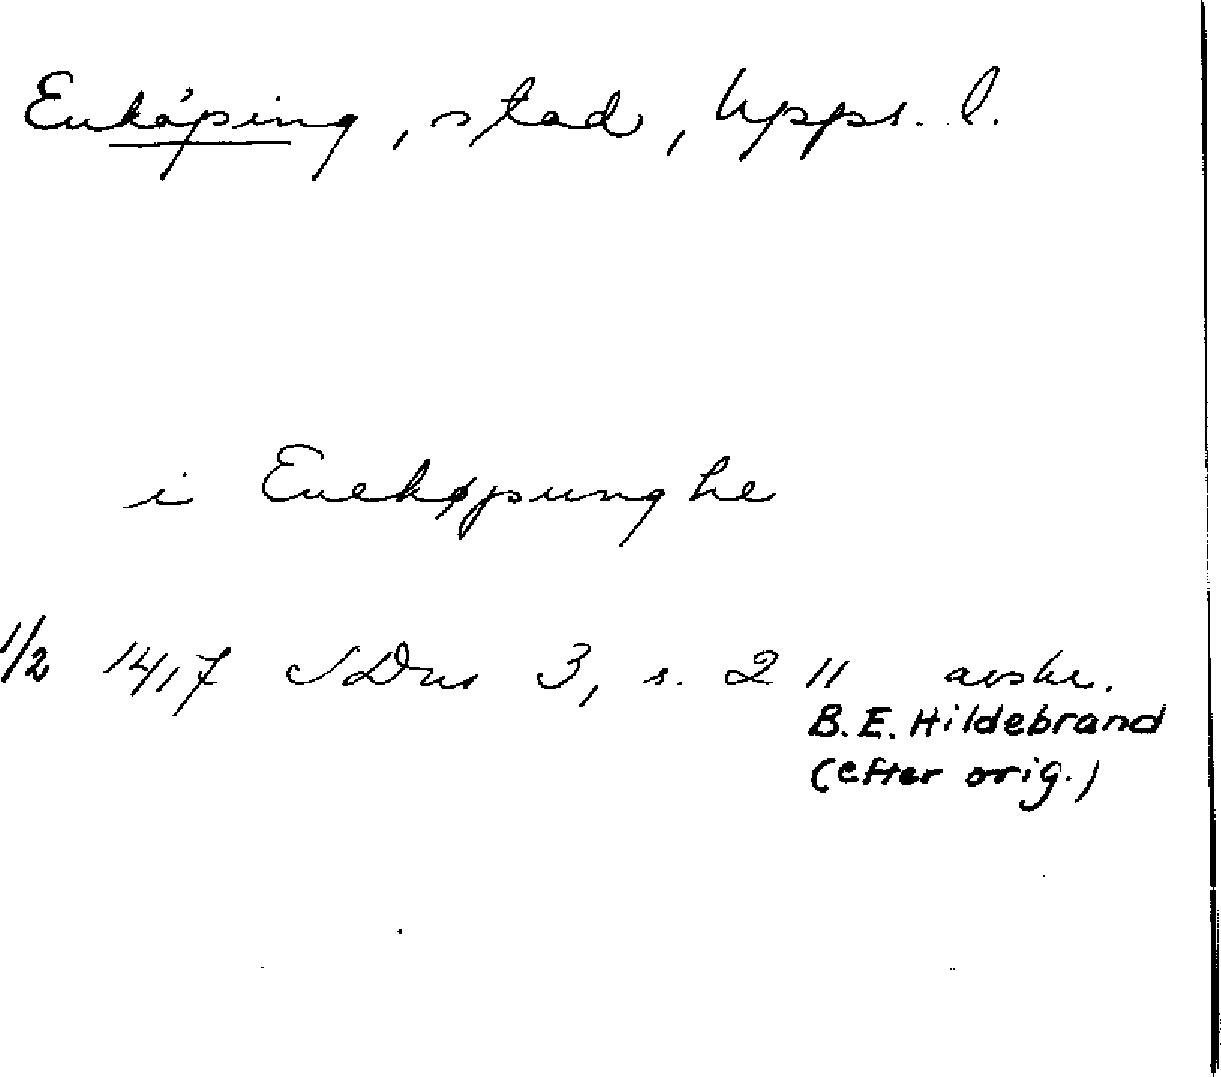 Enköping, stad, Upps. l.
i Enekøpunghe
1/2 1417 SDns 3, s. 211 avskr.
B. E. Hildebrand
(efter orig.)